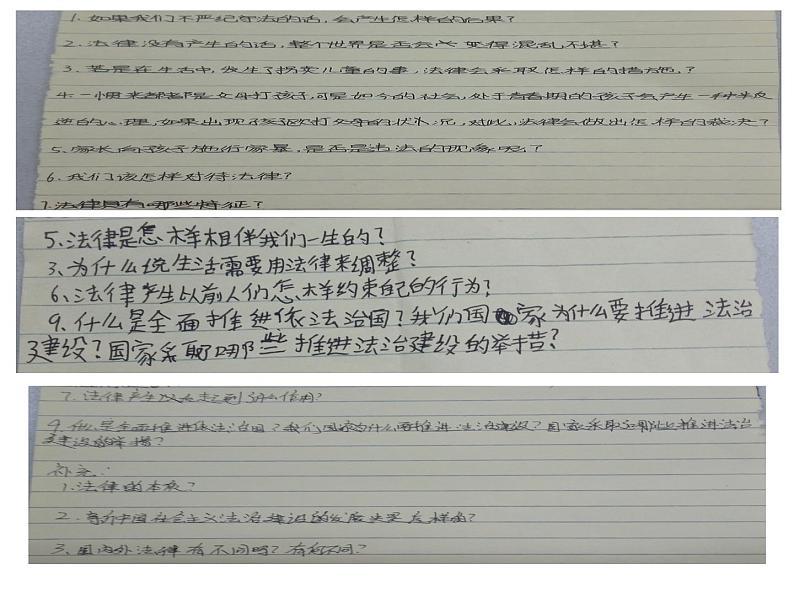 1. 如果我们不严纪守法的话，会产生怎样的后果？
2. 法律没有产生的话，整个世界是否会变得混乱不堪？
3. 若是在生活中，发生了拐卖儿童的事，法律会采取怎样的措施？
4. 一惯来都是父母打孩子，可是如今的社会，处于青春期的孩子会产生一种叛
逆的心理，如果出现了孩子殴打父母的状况，对此，法律会做出怎样的裁决？
5. 家长向孩子施行家暴，是否是违法的现象呢？
6. 我们该怎样对待法律？
7. 法律具有哪些特征？
5.法律是怎样相伴我们一生的？
3.为什么说生活需要用法律来调整？
6.法律产生以前人们怎样约束自己的行为？
9.什么是全面推进依法治国？我们国家为什么要推进法治
建设？国家采取哪些推进法治建设的举措？
7. 法律产生以后起到什么作用？
9. 什么是全面推进依法治国？我们国家为什么要推进法治建设？国家采取了哪些推进法治
建设的举措？
补充：
1. 法律的本质？
2. 中国社会主义法治建设的发展史是怎样的？
3. 国内外法律有不同吗？有何不同？